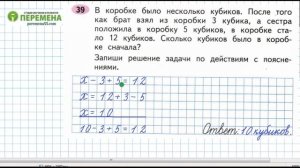 ПЕРЕМЕНА
39 В коробке было несколько кубиков. После того
как брат взял из коробки 3 кубика, а сестра
положила в коробку 5 кубиков, в коробке ста-
ло 12 кубиков. Сколько кубиков было в короб-
ке сначала?
Запиши решение задачи по действиям с поясне-
ниями.
x - 3 + 5 = 12
x = 12 + 3 - 5
x = 10
10 - 3 + 5 = 12
Ответ: 10 кубиков.